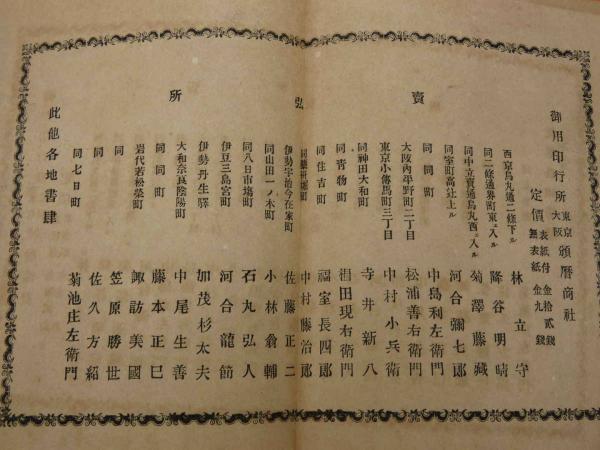 御用印行所 東京 大阪 頒曆商社
定價 表紙付 金拾貳錢
無表紙 金九錢
賣弘所
西京烏丸通二條下ル 林立守
同二條通堺町東ェ入ル 降谷明晴
同中立賣通烏丸西ェ入ル 菊澤藤藏
同室町高辻上ル 河合彌七郎
同同町 中島利左衛門
大坂內平野町二丁目 松浦善右衛門
東京小傳馬町三丁目 中村小兵衛
同神田大和町 寺井新八
同青物町 田現右衛門
同住吉町 福室長四郎
中村藤治郎
伊勢宇治今在家町 佐藤正二
同山田一ノ木町 小林翁輔
同八日市塲町 石丸弘人
伊豆三島宮町 河合龍節
伊勢丹生驛 加茂杉太夫
大和奈良陰陽町 中尾生善
同同町 藤本正巳
岩代若松榮町 諏訪美國
同 笠原勝世
同 佐久方紹
同七日町 菊池庄左衛門
此他各地書肆